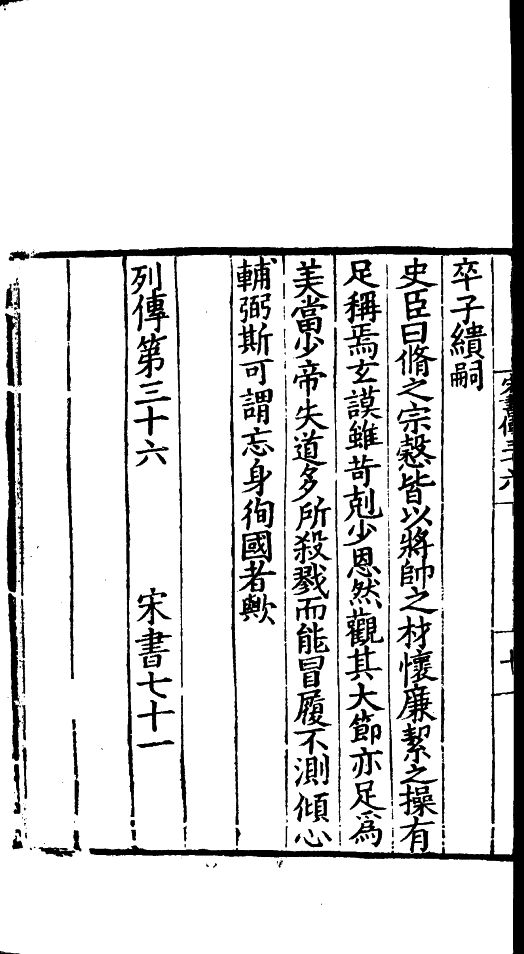 卒子繢嗣
史臣曰脩之宗慤皆以將帥之材懷廉絜之操有
足稱焉玄謨雖苛剋少恩然觀其大節亦足爲
美當少帝失道多所殺戮而能冒履不測傾心
輔弼斯可謂忘身徇國者歟
列傳第三十六 宋書七十一